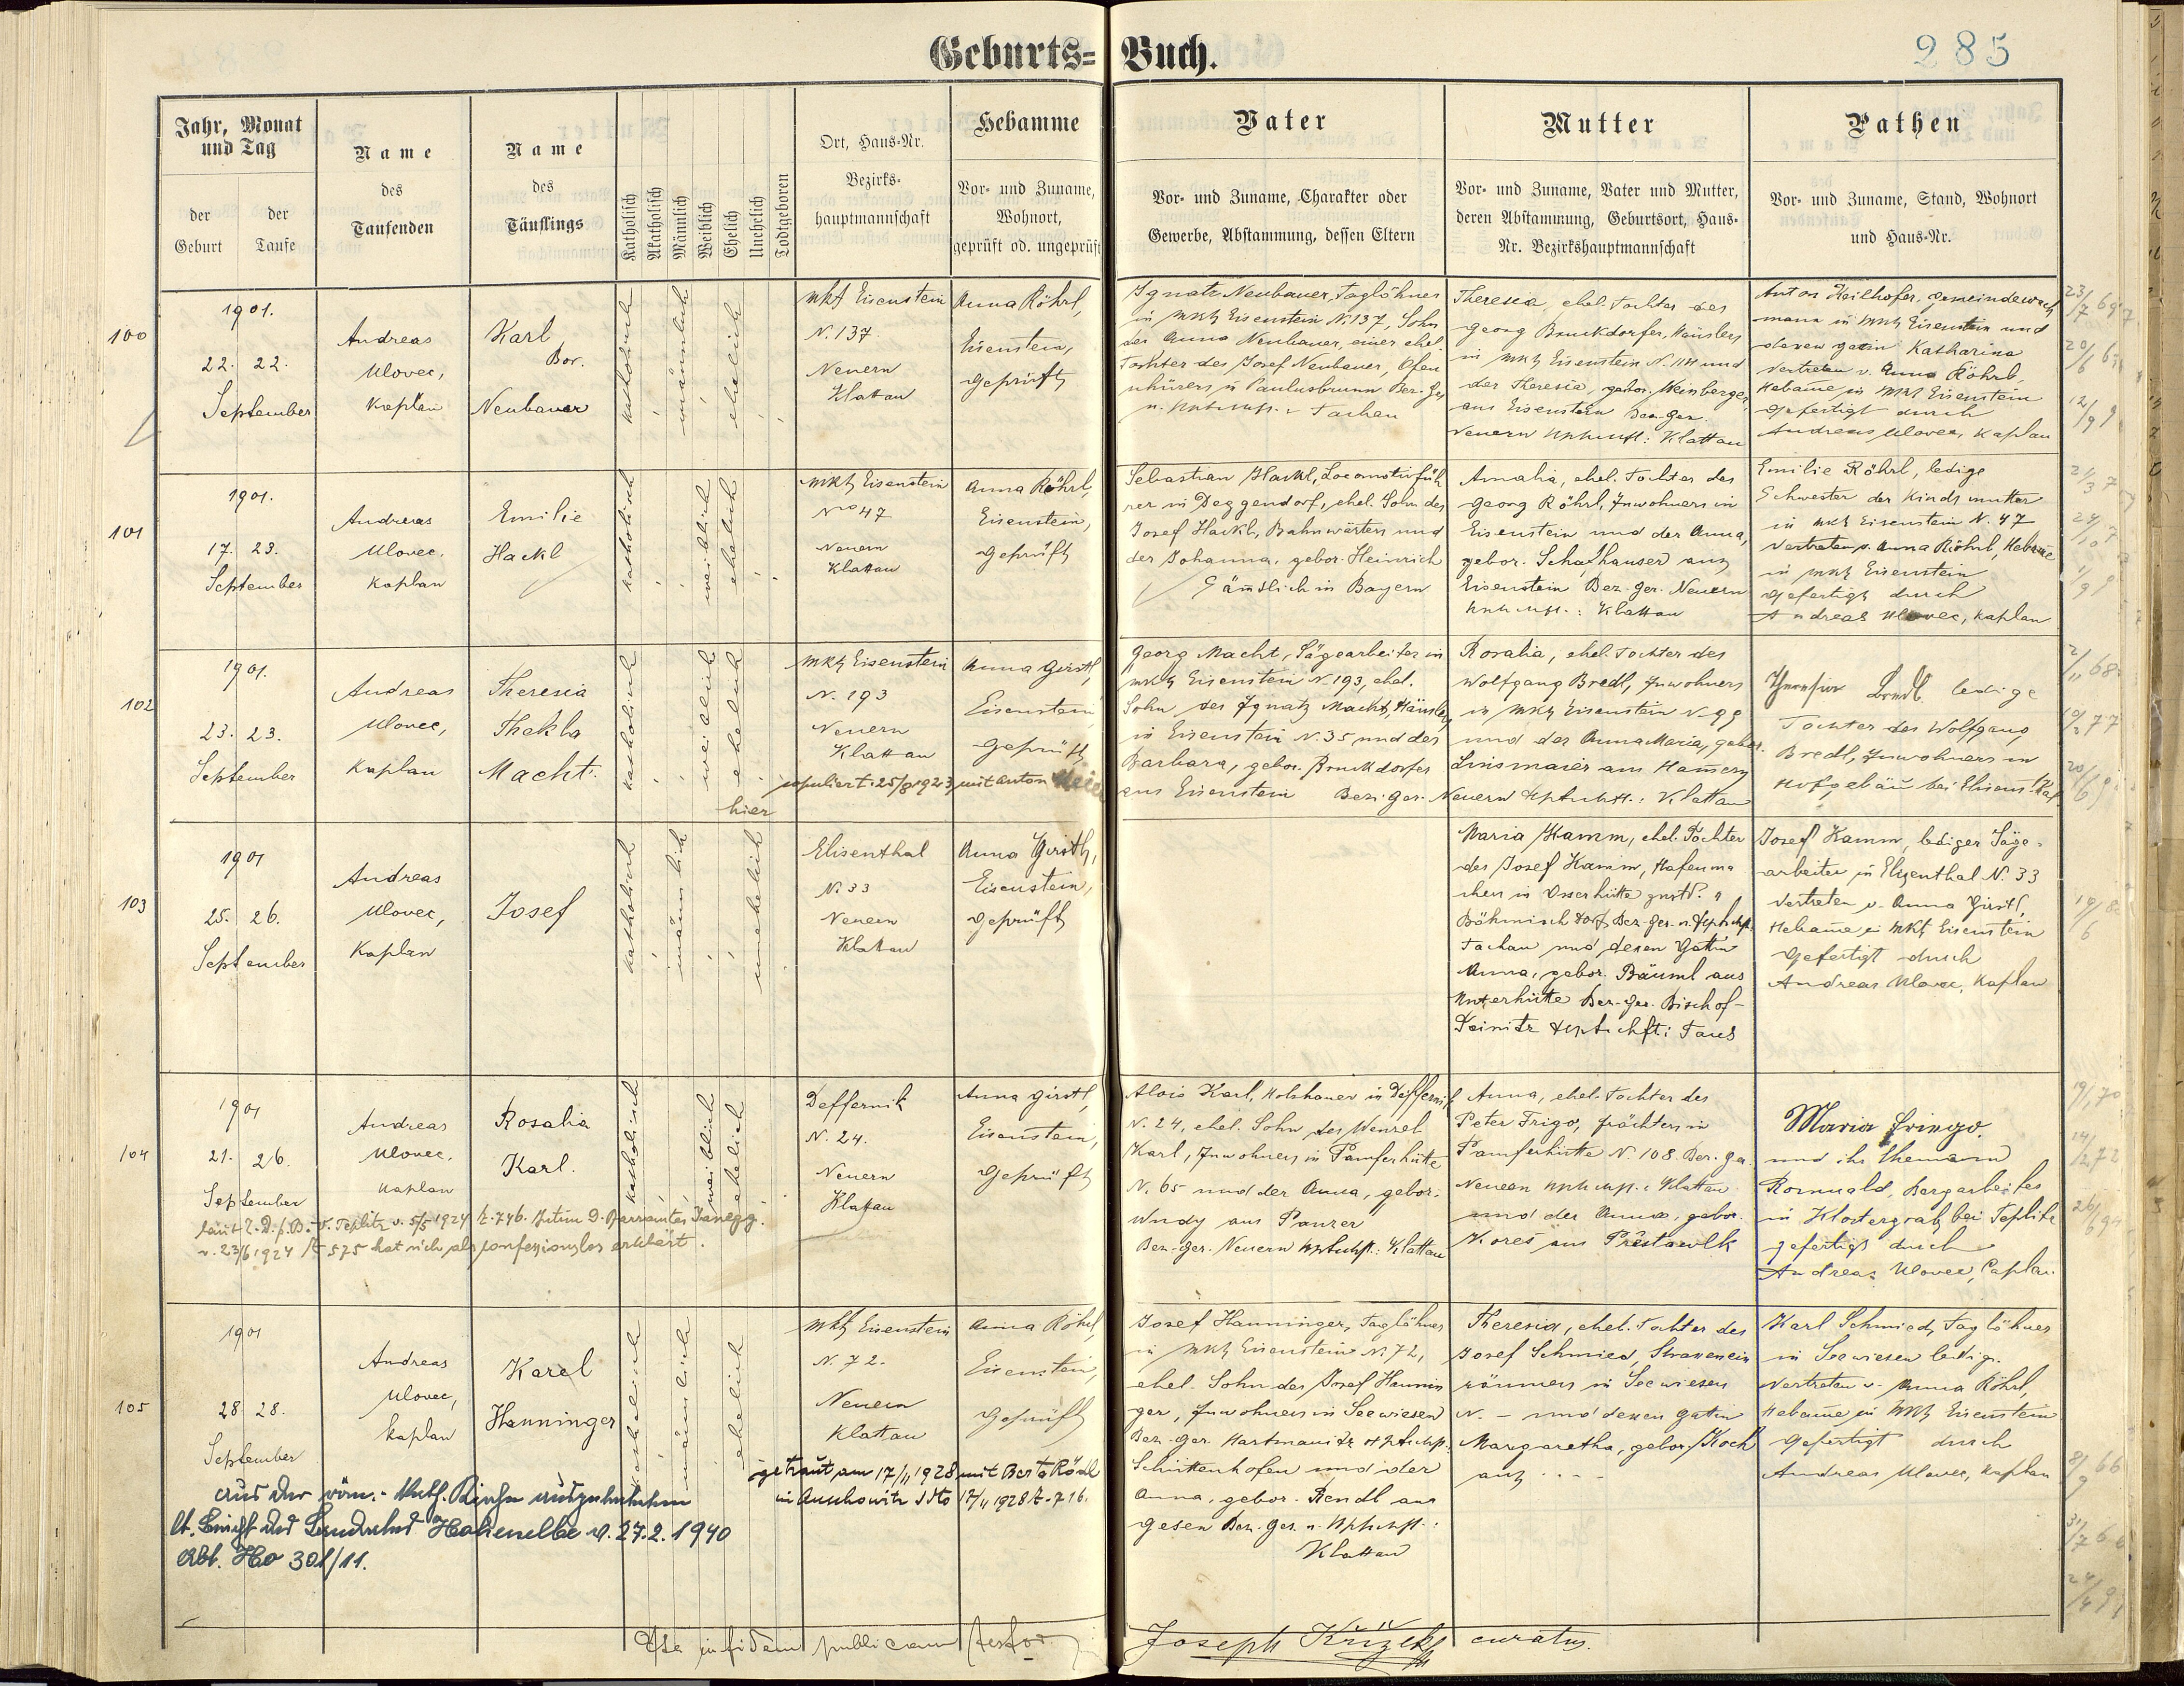 Geburts=Buch.
285
Jahr, Monat und Tag
der Geburt
der Taufe
Name des Taufenden
Name des Täuflings
Katholisch
Akatholisch
Männlich
Weiblich
Ehelich
Unehelich
Todtgeboren
Ort, Haus=Nr.
Bezirks=
hauptmannschaft
Hebamme
Vor= und Zuname,
Wohnort,
geprüft od. ungeprüft
Vater
Vor= und Zuname, Charakter oder
Gewerbe, Abstammung, dessen Eltern
Mutter
Vor= und Zuname, Vater und Mutter,
deren Abstammung, Geburtsort, Haus=
Nr. Bezirkshauptmannschaft
Pathen
Vor= und Zuname, Stand, Wohnort
und Haus=Nr.
100
1901.
22. 22.
September
Andreas
Ulovec,
Kaplan
Karl
Bor.
Neubauer
katholisch
männlich
ehelich
Mkt Eisenstein
N. 137
Neuern
Klattau
Anna Röhrl,
Eisenstein,
geprüft
Ignatz Neubauer, Taglöhner
in Mkt Eisenstein N. 137, Sohn
der Anna Neubauer, einer ehel.
Tochter des Josef Neubauer, Ofen
schürers in Paulusbrunn Bez. Ger
Tachau
Theresia, ehel. Tochter des
Georg Bruckdorfer, Häuslers
in Mkt Eisenstein N. 114 und
der Theresia, gebor. Weinberger
aus Eisenstein Bez. Ger.
Neuern Hptmsft: Klattau
Anton Heilhofer, Gemeindewach
mann in Mkt Eisenstein und
deren Gattin Katharina
Vertreten v. Anna Röhrl,
Hebamme in Mkt Eisenstein
Gefertigt durch
Andreas Ulovec, Kaplan
101
1901.
17. 23.
September
Andreas
Ulovec.
Kaplan
Emilie
Hackl
katholisch
weiblich
ehelich
Mkt Eisenstein
No 47
Neuern
Klattau
Anna Röhrl,
Eisenstein,
geprüft
Sebastian Hackl, Locomotivfüh
rer in Deggendorf, ehel. Sohn des
Josef Hackl, Bahnwärters und
der Johanna, gebor. Heinrich
Sämtlich in Bayern
Amalia, ehel. Tochter des
Georg Röhrl, Inwohners in
Eisenstein und der Anna,
gebor. Schafhauser aus
Eisenstein Bez. Ger. Neuern
Klattau
Emilie Röhrl, ledige
Schwester der Kindsmutter
in Mkt Eisenstein N. 47
Vertreten v. Anna Röhrl, Hebame
in Mkt Eisenstein
gefertigt durch
Andreas Ulovec, Kaplan
102
1901.
23. 23.
September
Andreas
Ulovec,
Kaplan
Theresia
Thekla
Macht.
katholisch
weiblich
ehelich
Mkt Eisenstein
N. 193
Neuern
Klattau
Anna Girstl,
Eisenstein
geprüft
copuliert 25/8 1923 mit Anton
hier
Georg Macht, Sägearbeiter in
Mkt Eisenstein N. 193, ehel.
Sohn des Ignatz Macht, Häusler
in Eisenstein N. 35 und der
Barbara, gebor. Bruckdorfer
aus Eisenstein Bez. Ger. Neuern Hptmsft.: Klattau
Rosalia, ehel. Tochter des
Wolfgang Bredl, Inwohners
in Mkt Eisenstein N. 99
und der Anna Maria, gebor.
Linsmaier aus Hammern
Theresia Bredl ledige
Tochter des Wolfgang
Bredl, Inwohners in
Hofgebäu bei
103
1901
25. 26.
September
Andreas
Ulovec,
Kaplan
Josef
katholisch
männlich
unehelich
Elisenthal
N. 33
Neuern
Klattau
Anna Girstl,
Eisenstein,
geprüft
Maria Hamm, ehel. Tochter
des Josef Hamm, Hafenma
chers in Osserhütte
Böhmischdorf, Bez. Ger. u. Hptmft.
Tachau und deren Gattin
Anna, gebor. Bäuml aus
Unterhütte Bez. Ger. Bischof-
Teinitz Hptschft: Taus
Josef Hamm, lediger Säge-
arbeiter in Elisenthal N. 33
Vertreten v. Anna Girstl,
Hebame in Mkt Eisenstein
Gefertigt durch
Andreas Ulovec, Kaplan
104
1901
21. 26.
September
Andreas
Ulovec.
Kaplan
Rosalia
Karl.
katholisch
weiblich
ehelich
Deffernik
N. 24.
Neuern
Klattau
Anna Girstl,
Eisenstein,
geprüft
laut Z. D. p. B.-V. Teplitz v. 5/5 1924 Z. 746. Pfarramtes Janegg.
v. 23/6 1924 Z 575 hat sich als konfessionslos erklärt.
Alois Karl, Holzhauer in Deffernik
N. 24, ehel. Sohn des Wenzel
Karl, Inwohners in Pamferhütte
N. 65 und der Anna, gebor.
Wudy aus Panzer
Bez. Ger. Neuern Hptschft.: Klattau
Anna, ehel. Tochter des
Peter Frigo, Pächters in
Pamferhütte N. 108. Bez. Ger.
Neuern Klattau
und der Anna, gebor.
Kores aus
Maria Fringo.
und ihr Ehemann
Romuald, Bergarbeiter
in Klostergrab bei Teplitz
gefertigt durch
Andreas Ulovec, Caplan
105
1901
28 28.
September
Andreas
Ulovec,
Kaplan
Karel
Hanninger
katholisch
männlich
ehelich
Mkt Eisenstein
N. 72.
Neuern
Klattau
Anna Röhrl,
Eisenstein,
geprüft
getraut am 17/11 1928 mit Berta Rödl
in Auschowitz ddto 17/11 1928 Z. 716.
aus der röm.-kath. Kirche ausgetreten
Hohenelbe v. 27.2.1940
Abt. Ho 301/11.
Josef Hanninger, Taglöhner
in Mkt Eisenstein N. 72,
ehel. Sohn des Josef Hannin
ger, Inwohners in Seewiesen
Bez. Ger. Hartmanitz Hptschft.:
Schüttenhofen und der
Anna, gebor. Rendl aus
Gesen Bez. Ger. u. Hptschft.:
Klattau
Theresia, ehel. Tochter des
Josef Schmied, Strassenein
räumers in Seewiesen
N. – und dessen Gattin
Margaretha, gebor. Koch
aus . . . .
Karl Schmied, Taglöhner
in Seewiesen ledig.
Vertreten v. Anna Röhrl,
Hebame in Mkt Eisenstein
Gefertigt durch
Andreas Ulovec, Kaplan
Ita in fidem publicam testor
Joseph Křížek curatus.